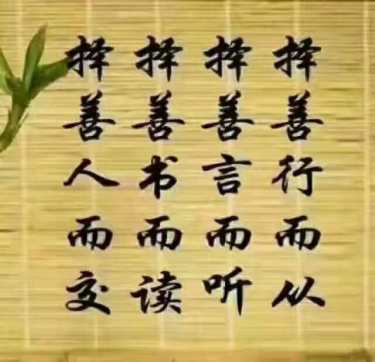 择善人而交
择善书而读
择善言而听
择善行而从